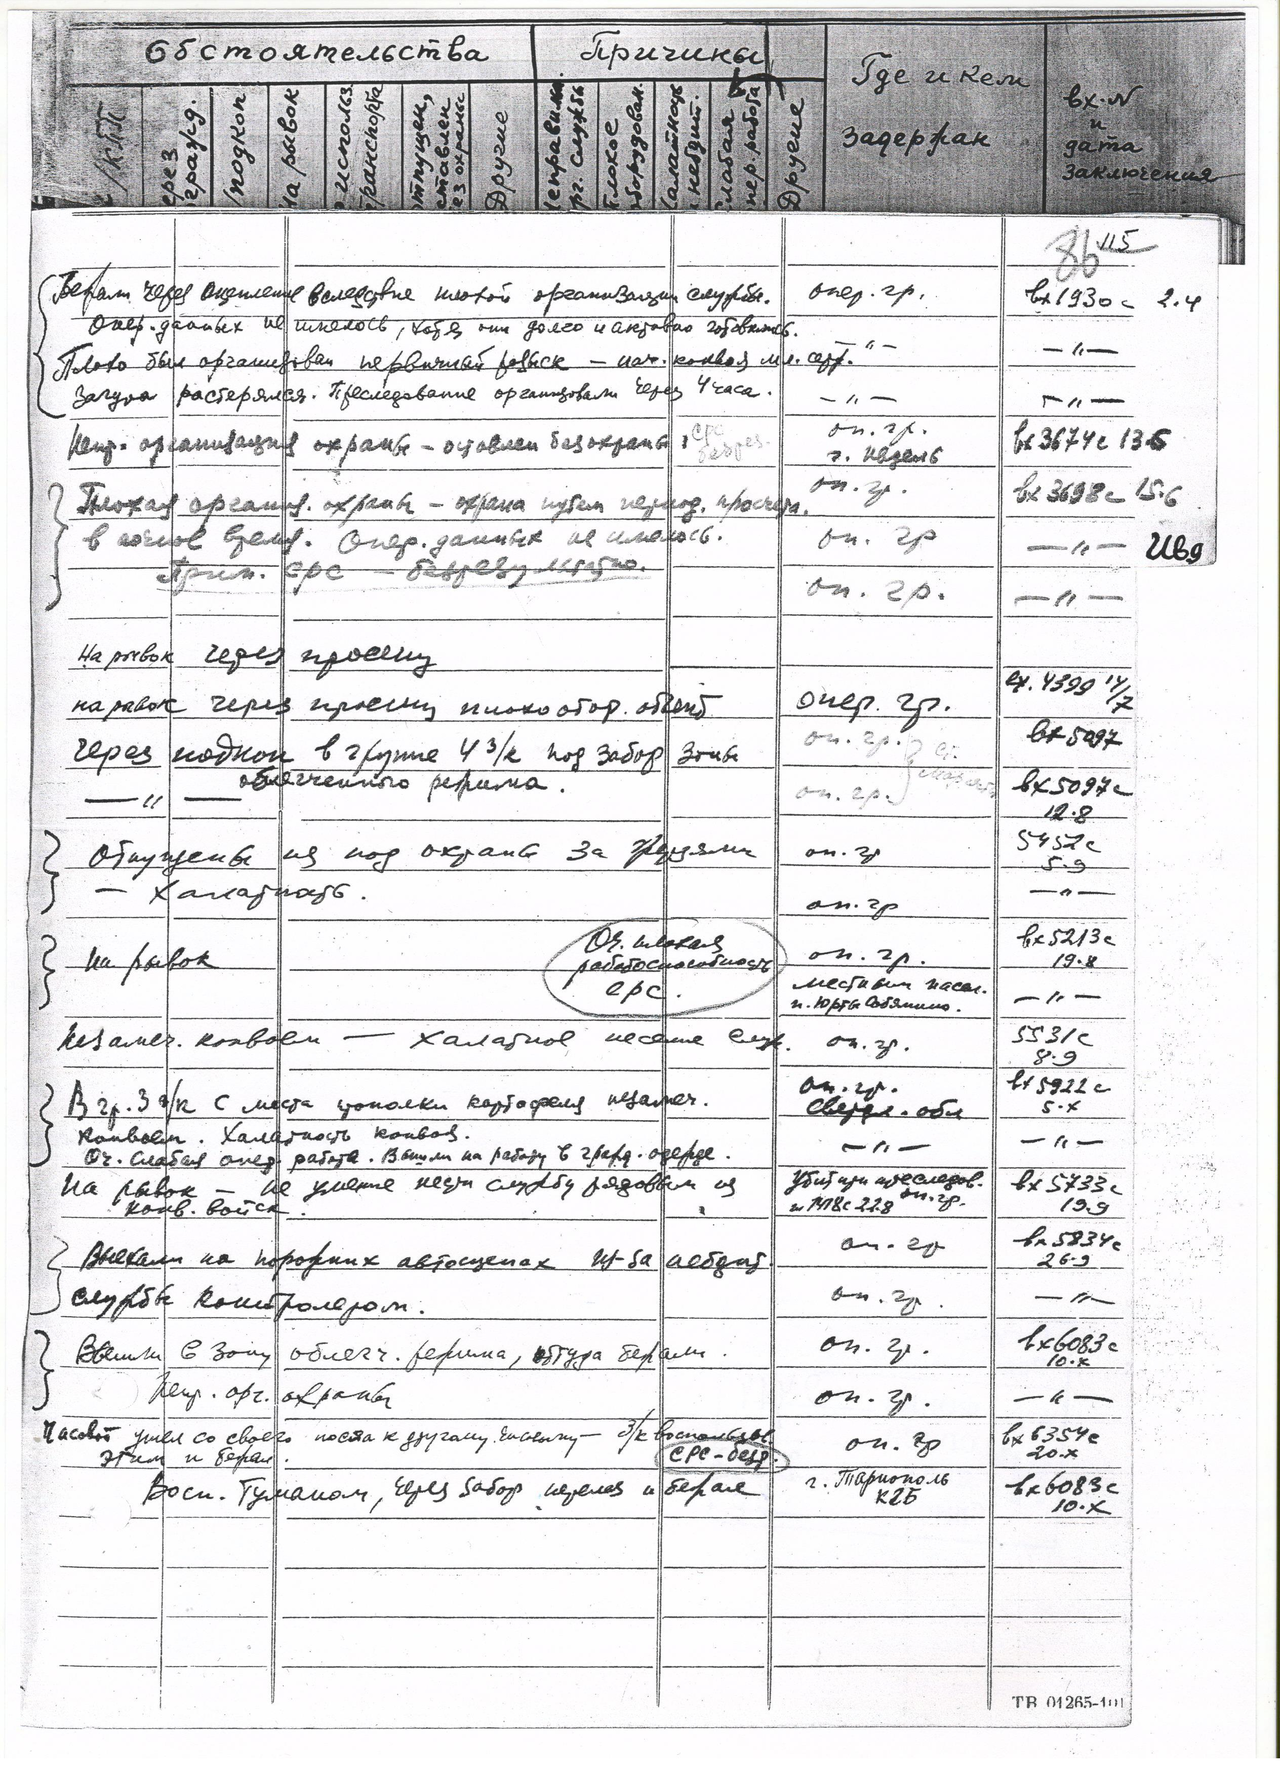 Обстоятельства
Причины
Где и кем
задержан
вх.N
и
дата
заключения
/КПП
через
заражд.
подкоп
на рывок
с использ.
транспорта
отпущен,
оставлен
без охраны
Другие
неправильн.
орг. службы
плохое
оборудован.
халатность
слабая
опер. работа
Другие
86 115
Бежали через оцепление вследствие плохой организации службы. опер. гр. вх 1930с 2.4
Опер. данных не имелось, хотя они долго и активно готовились.
Плохо был организован первичный розыск – нач. конвоя мл. серж. — " — — " —
растерялся. Преследование организовали через 4 часа. — " — — " —
Непр. организация охраны – оставлен без охраны, СРС безрез. оп. гр. вх 3674с 13.6
Плохая организ. охраны – охрана путем период. просчета. оп. гр. вх 3698с 15.6
в ночное время. Опер. данных не имелось. оп. гр — " —
Прим. СРС – безрезультатно. оп. гр. — " —
На рывок через просеку
на рывок через просеку плохо обор. объект опер. гр. вх. 4399 14/7
Через подкоп в группе 4 з/к под забор зоны оп. гр. вх 5097
— " — облегченного режима. оп. гр. вх 5097с
12.8
Отпущены из под охраны за оп. гр 5452с
5.9
— Халатность. оп. гр — " —
На рывок Оч. плохая
работоспособность
СРС. оп. гр. вх 5213с
19.8
местным насел.
п. Юрты — " —
Незамеч. конвоем — Халатное несение служ. оп. гр. 5531с
8.9
В гр. 3 з/к с места прополки картофеля незамеч. оп. гр.
Свердл. обл вх 5922с
5.X
конвоем. Халатность конвоя. — " — — " —
Оч. слабая опер. работа. Вышли на работу в гражд. одежде.
На рывок – не умение нести службу рядовым из убит при преследов. вх 5733с
конв. войск. оп. гр. 19.9
Выехали на порожних автосцепах оп. гр вх 5834с
26.9
службы контролером. оп. гр. — " —
Вышли в зону облегч. режима, оттуда бежали. оп. гр. вх 6083с
10.X
Непр. орг. охраны оп. гр. — " —
Часовой ушел со своего поста к другому часовому – з/к воспользов. оп. гр вх 6354с
этим и бежал. СРС – безр. 20.X
Восп. туманом, через забор перелез и бежал г. Тарнополь
КГБ вх 6083с
10.X
ТВ 01265-101